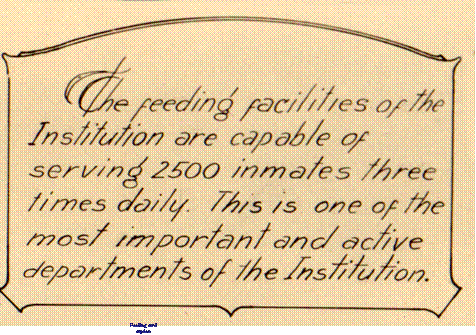 The feeding facilities of the
Institution are capable of
serving 2500 inmates three
times daily. This is one of the
most important and active
departments of the Institution.